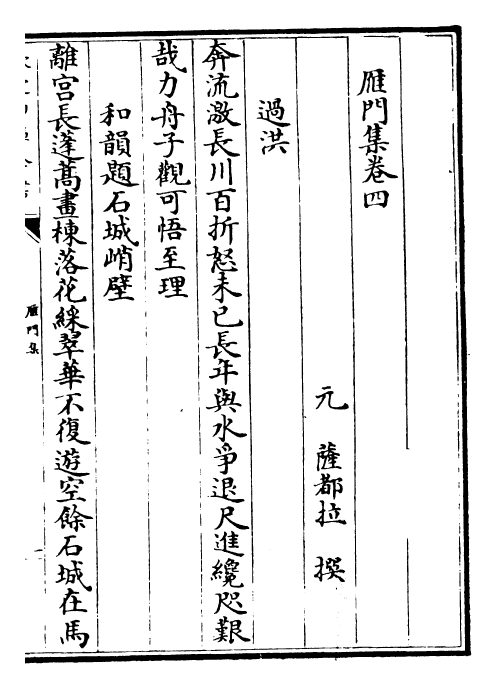 雁門集卷四
元 薩都拉 撰
過洪
奔流激長川百折怒未已長年與水爭退尺進纔咫艱
哉力舟子觀可悟至理
和韻題石城峭壁
離宮長蓬蒿畫棟落花綵翠華不復遊空餘石城在馬
雁門集